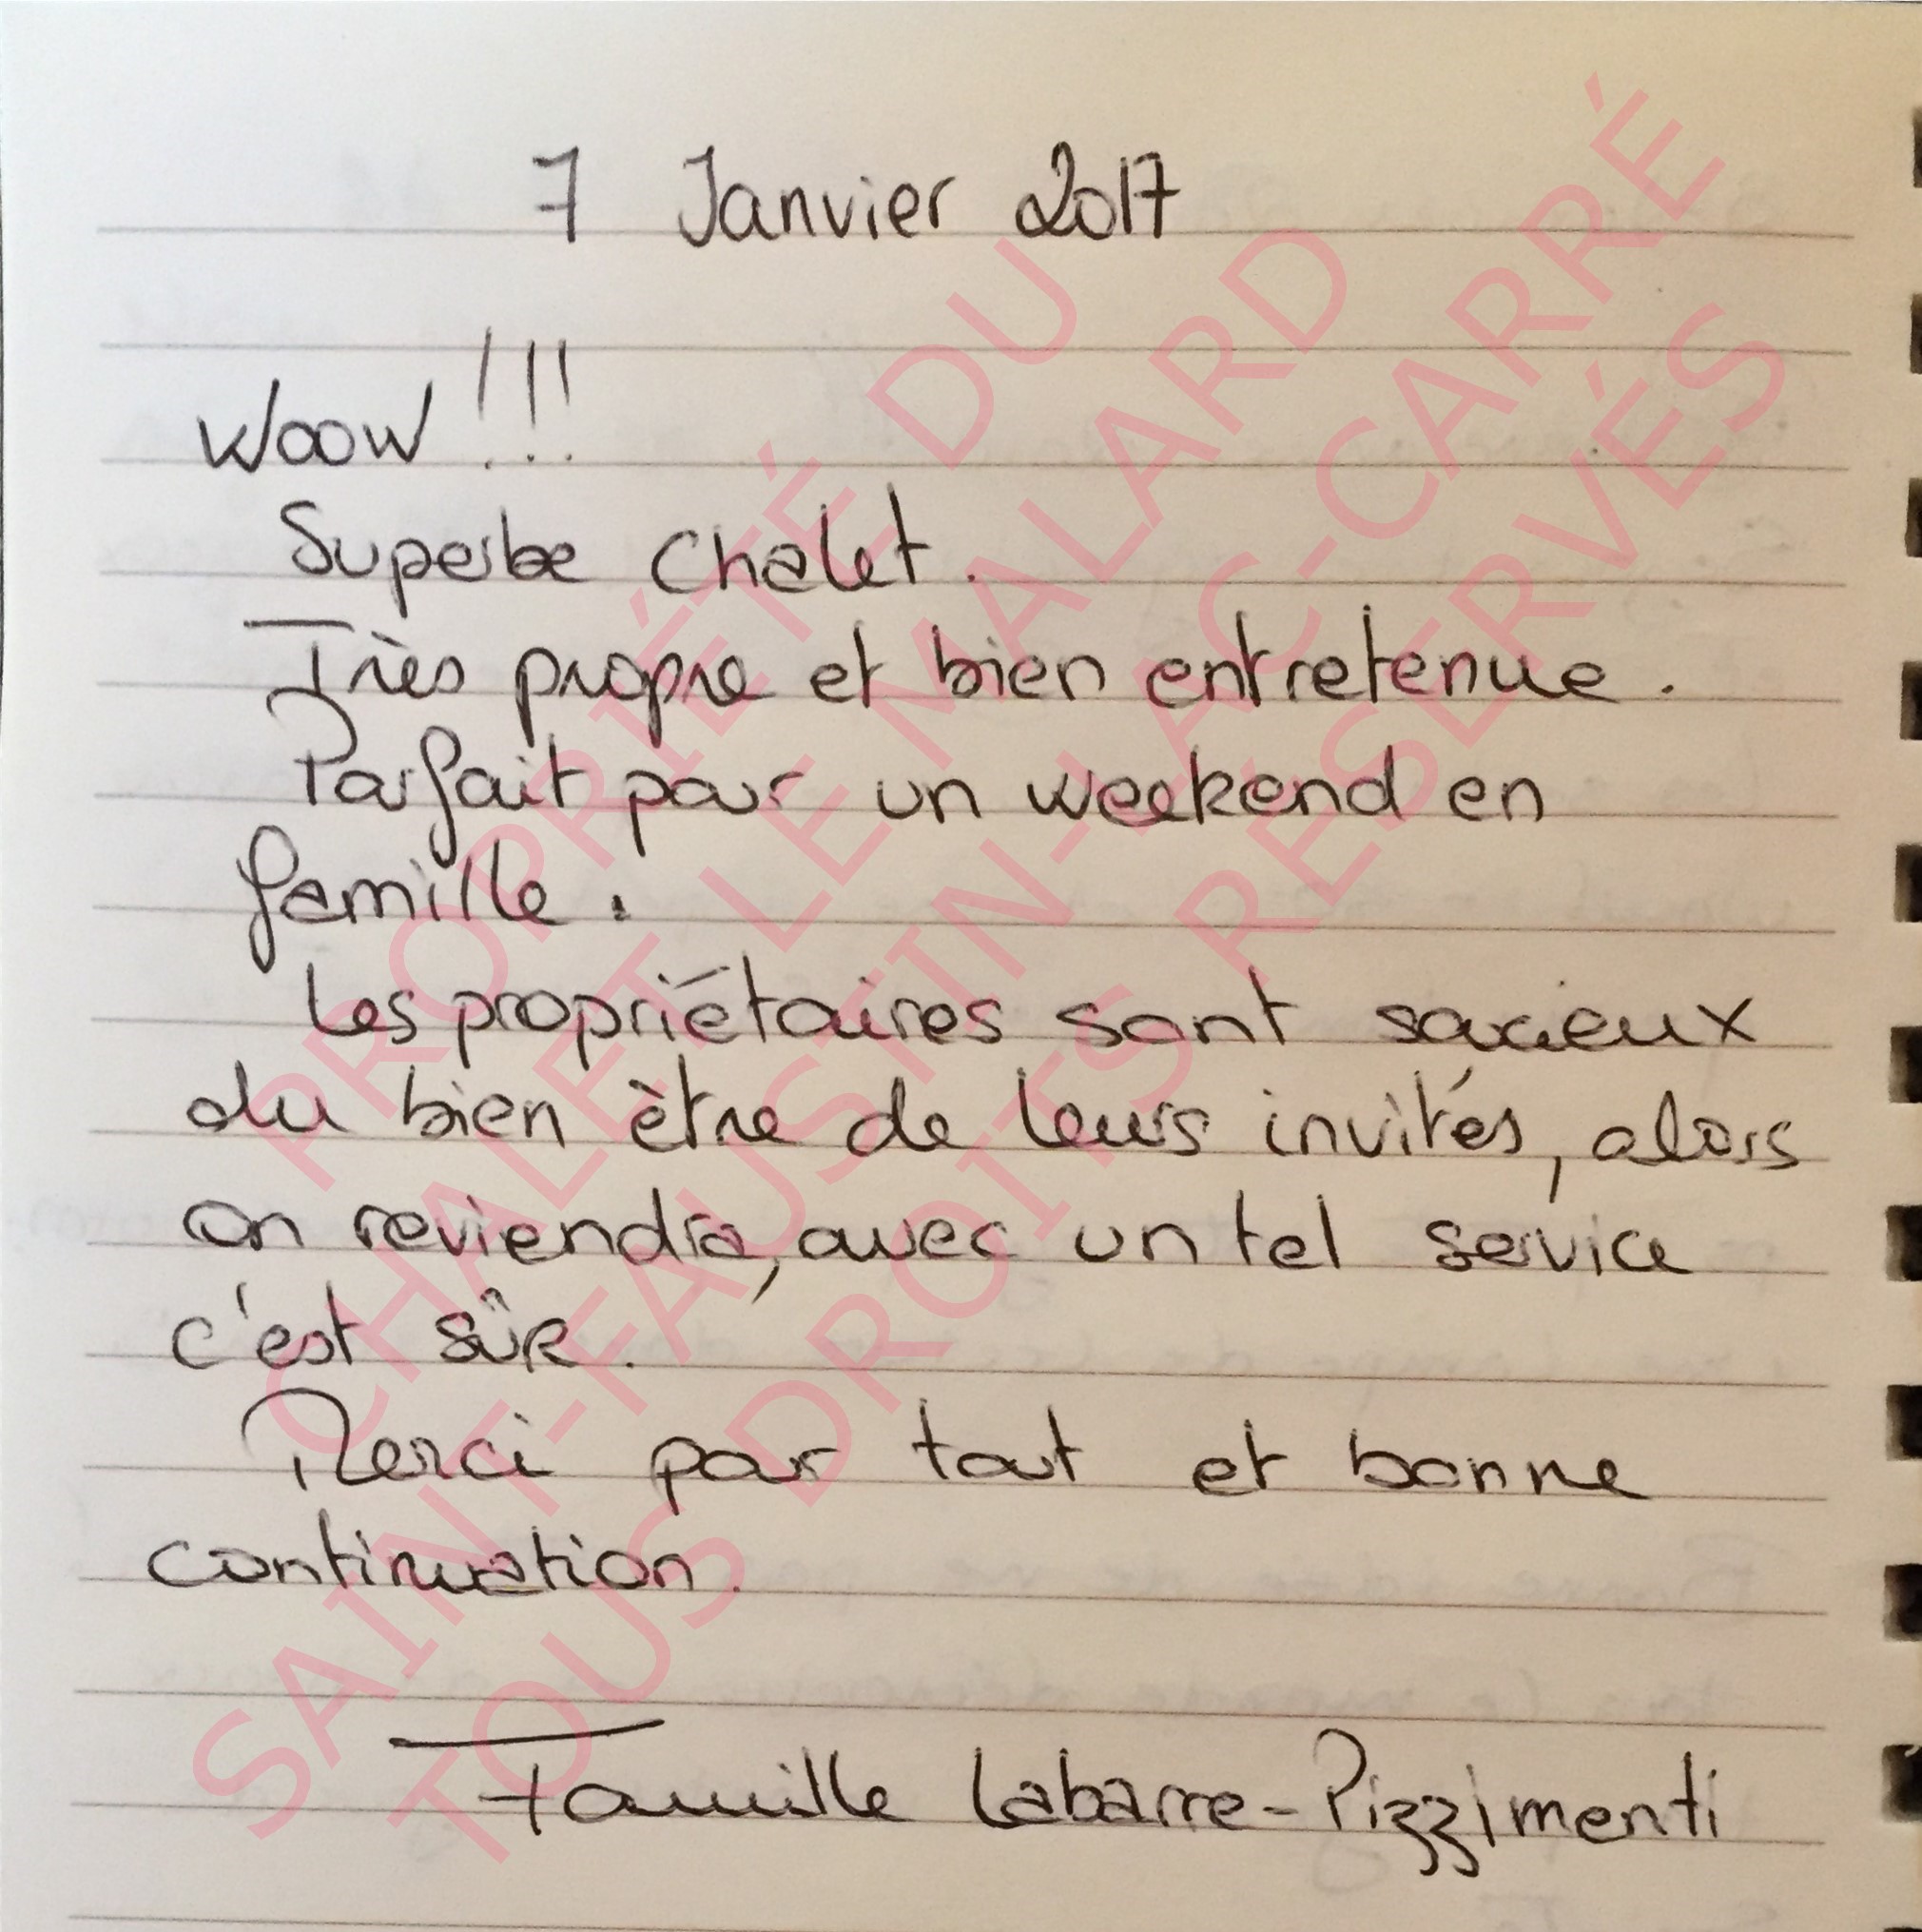 7 Janvier 2017
Woow !!!
Superbe chalet.
Très propre et bien entretenue.
Parfait pour un weekend en
famille.
Les propriétaires sont soucieux
du bien être de leurs invités, alors
on reviendra, avec un tel service
c'est sûr.
Merci pour tout et bonne
continuation.
Famille Labarre-Pizzimenti
PROPRIÉTÉ DU
CHALET LE MALARD
SAINT-FAUSTIN-LAC-CARRÉ
TOUS DROITS RÉSERVÉS